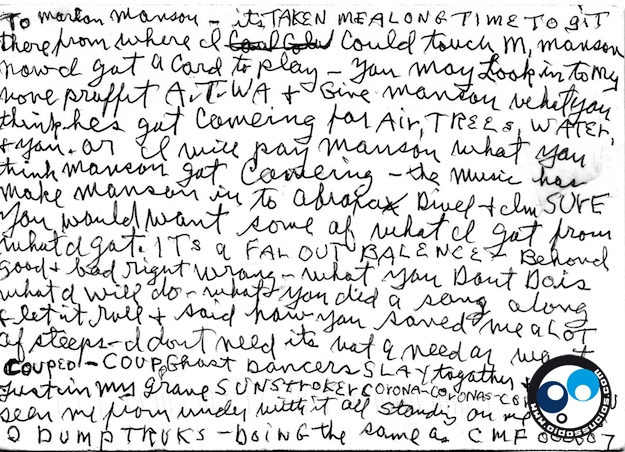 To marlon manson - its TAKEN ME ALONG TIME TO giT
there from where I Could touch M, manson
nowd I got a Card to play - you may Look in to my
none proffit A.T.W.A + Give manson what you
think hes got Comeing for Air, TREES, WATER,
+ you. or I will pay manson what you
think manson got Comeing - the music has
make manson in to abraxx Divel + Im SURE
you would want some of what I got from
what I got. ITs a FAL OUT BALENCE - Behond
good + bad right wrong - what you Dont Do is
what I will do - what you did a song along
+ let it roll + said how you saved me a LOT
of steeps - I dont need its not a need or
COUPED - COUP. Ghost DANCERS SLAY togather
just in my grave SUNSTROKER CORONA-CORONAS-
seen me from under with it all standing on
2 DUMPTRUKS - DOING the same as CMF 000007